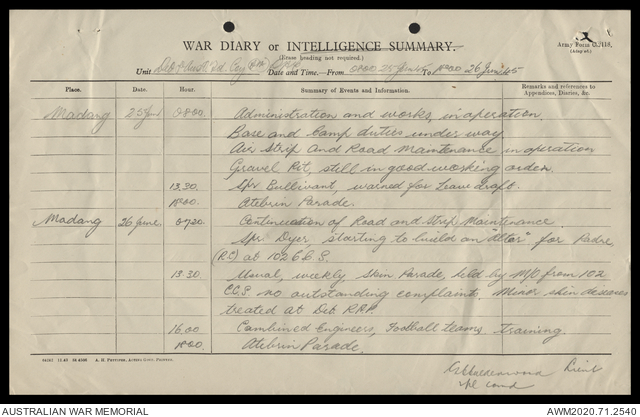 Army Form C.2118.
WAR DIARY or INTELLIGENCE SUMMARY.
(Erase heading not required.)
Unit Date and Time—From 0800 25 June 45 To 1800 26 June 45
Place. Date. Hour. Summary of Events and Information. Remarks and references to Appendices, Diaries, &c.
Madang 25 June 0800 Administration and works, in operation.
Base and Camp duties under way
Air Strip And Road Maintenance in operation
Gravel Pit, still in good working order.
13.30 Spr Bullivant, warned for Leave draft.
1800 Atebrin Parade.
Madang 26 June. 0720 Continuation of Road and Strip Maintenance
Spr. Dyer, starting to build an "Alter" for Padre,
(R.C) at 102 C.C.S.
13.30 Usual, weekly, Skin Parade, held by M/O from 102
C.C.S. no outstanding complaints. Minor skin deseases
treated at Det. R.A.P.
16.00 Combined Engineers, Football teams, training.
1800 Atebrin Parade.
A. H. Pettifer, Acting Govt. Printer.
Lieut
AUSTRALIAN WAR MEMORIAL AWM2020.71.2540